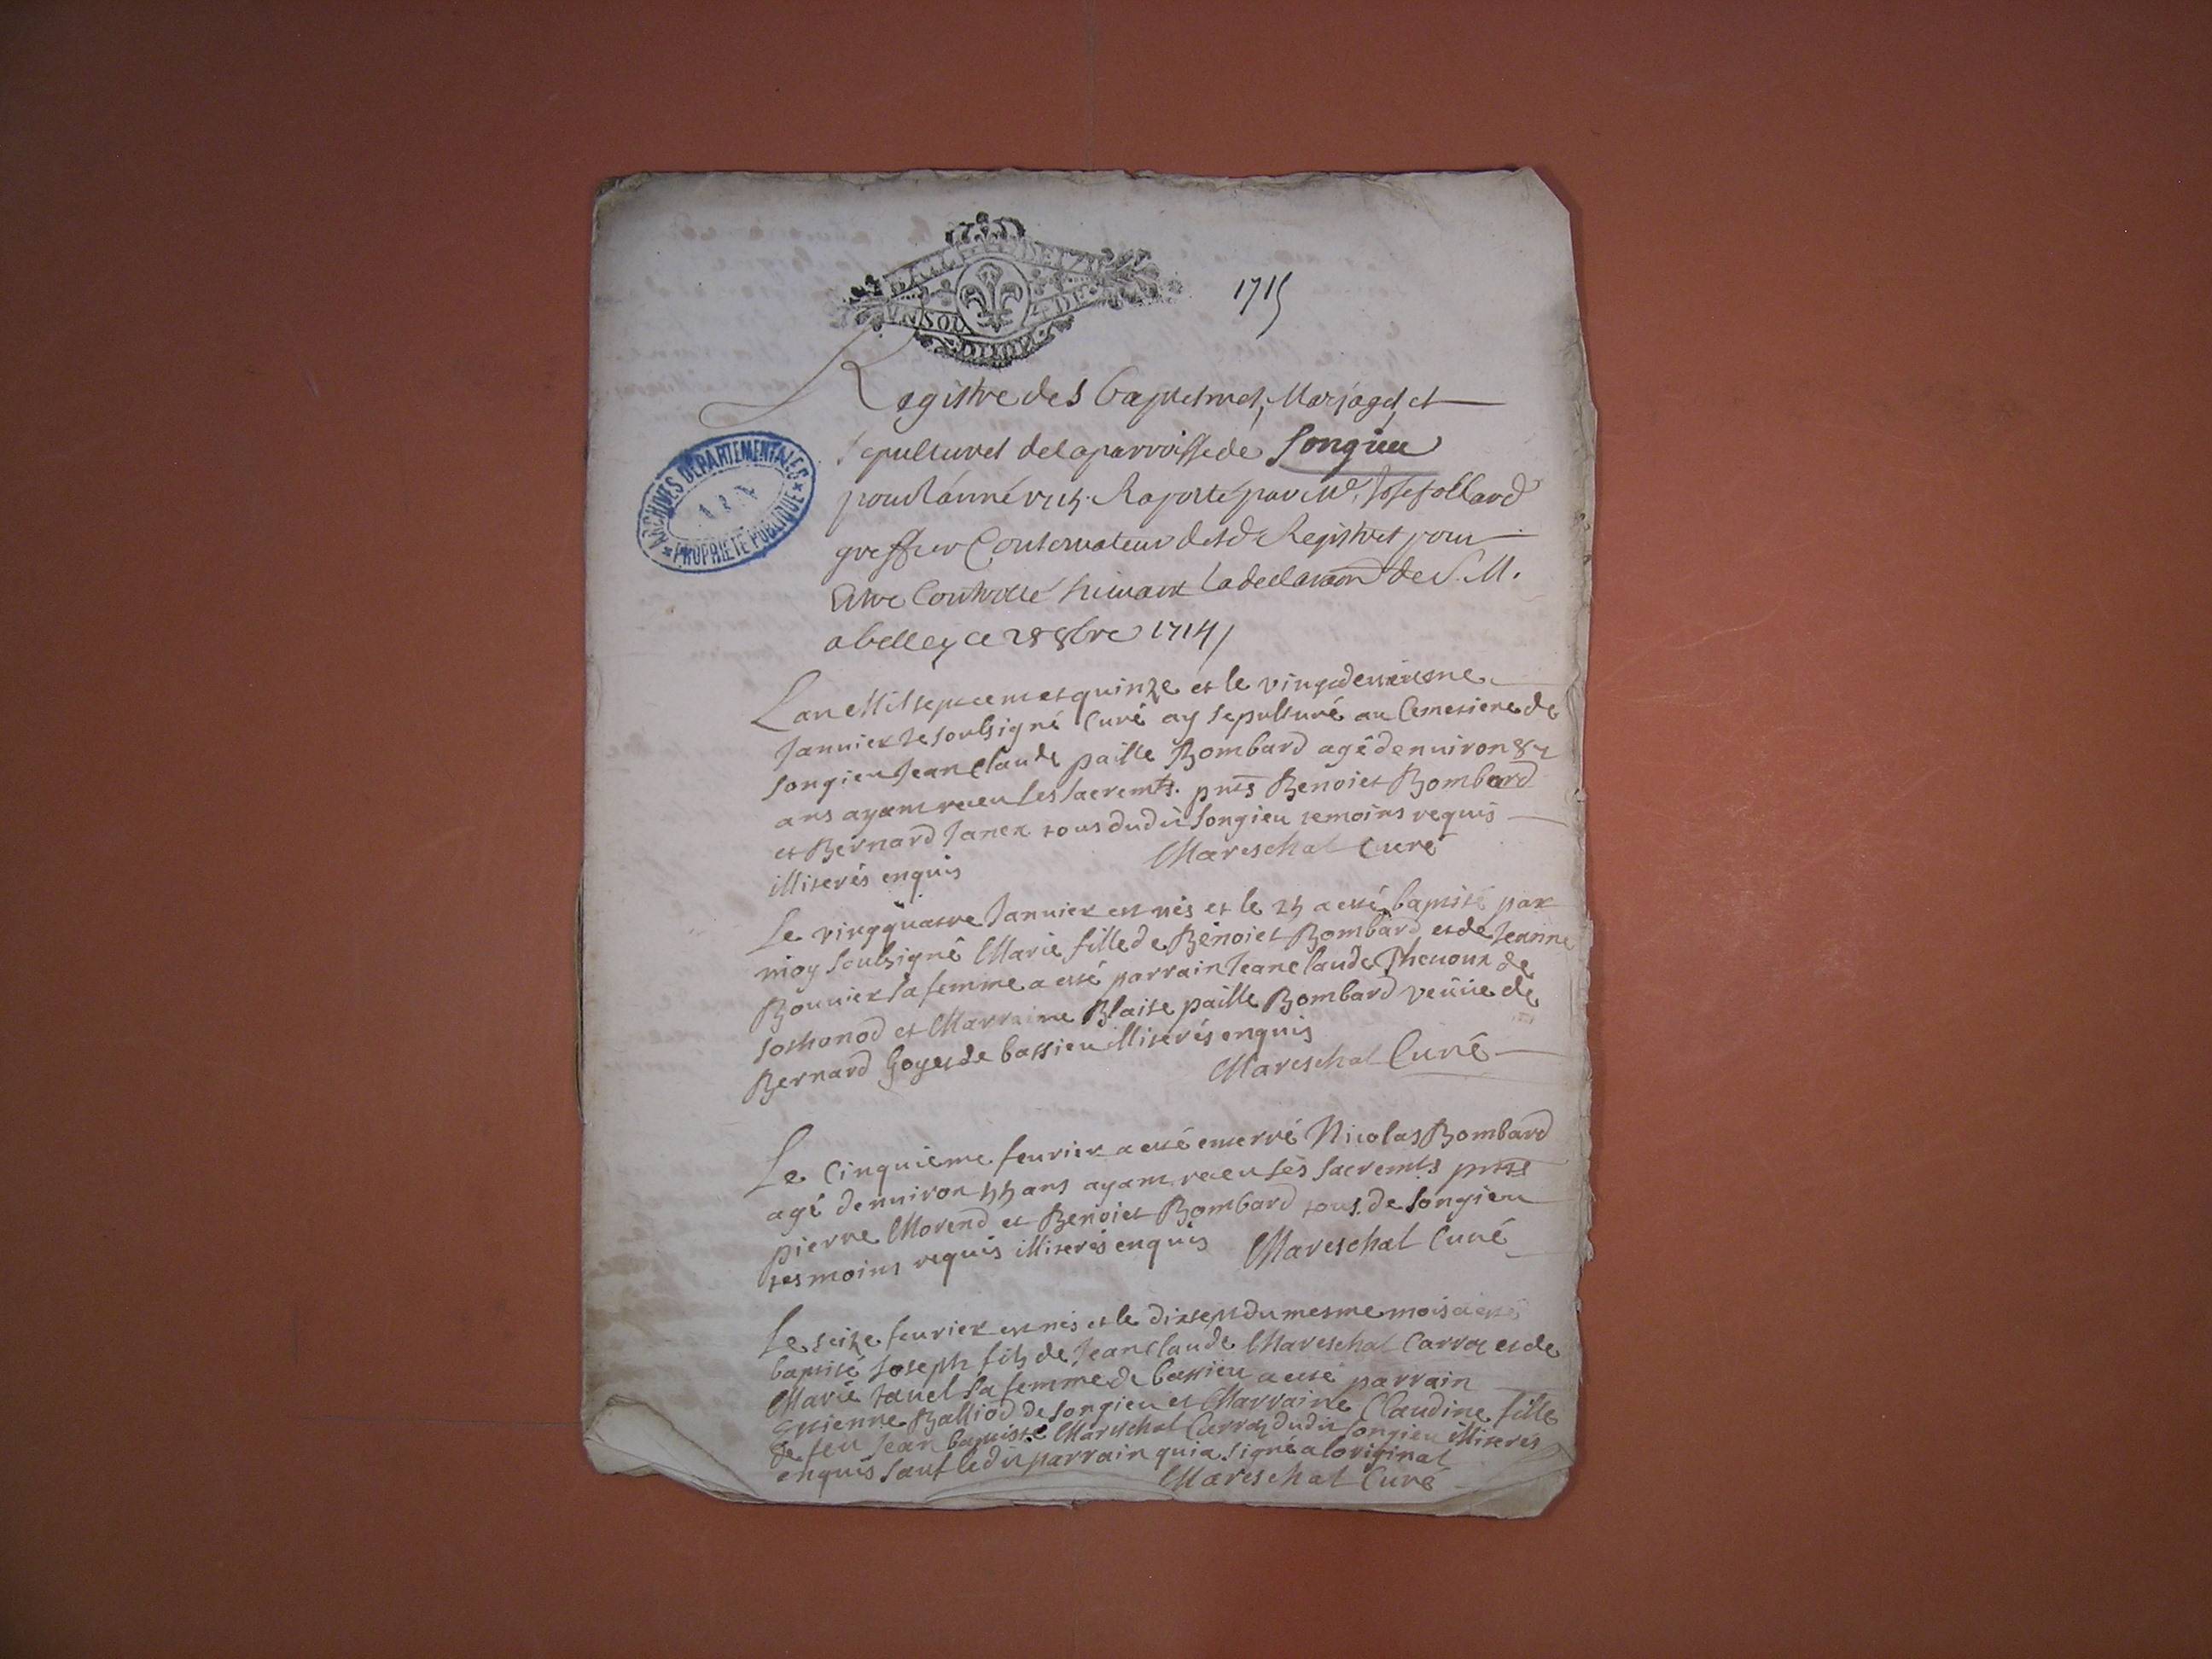 1715
Registre des baptesmes, Mariages, et
sepultures de la parroisse de Songieu
pour l'année 1715. Raporté par Me. Josef ollard
greffier Conservateur desd Registres pour
Estre Controllé suivant la declaraon de S. M.
a belley ce 28 8bre 1714
ARCHIVES DÉPARTEMENTALES
AIN
PROPRIÉTÉ PUBLIQUE
UN SOU
Lan Mil sept cent et quinze et le vingt deuxiesme
Januier Je soubsigné Curé ay sepulturé au Cemetiere de
Songieu Jean Claude paille Bombard agé denuiron
ans ayant receu les sacremts. pnts Benoiet Bombard
et Bernard Janex tous dudit Songieu temoins requis
illiterés enquis Mareschal Curé
Le vingt quatre Januier est nés et le 25 a esté baptisé par
moy soubsigné Marie fille de Benoiet Bombard et de Jeanne
Bouuier sa femme a esté parrain Jean claude Theuoux de
Sothonod et Marraine Blaise paille Bombard veüüe de
Bernard Goyet de bassieu illiterés enquis
Mareschal Curé
Le Cinquième feurier a esté enterré Nicolas Bombard
agé denuiron 55 ans ayant receu les sacremts pnts
pierre Morend et Benoiet Bombard tous de Songieu
tesmoins requis illiterés enquis Mareschal Curé
Le seize feurier est nés et le dixsept du mesme mois a esté
baptisé Joseph fils de Jean Claude Mareschal Carroz et de
Marie Jauel sa femme de bassieu a esté parrain
Estienne Balliod de Songieu et Marraine Claudine fille
de feu Jean baptiste Mareschal Carroz dudit Songieu illiterés
enquis sauf ledit parrain qui a signé a loriginal
Mareschal Curé